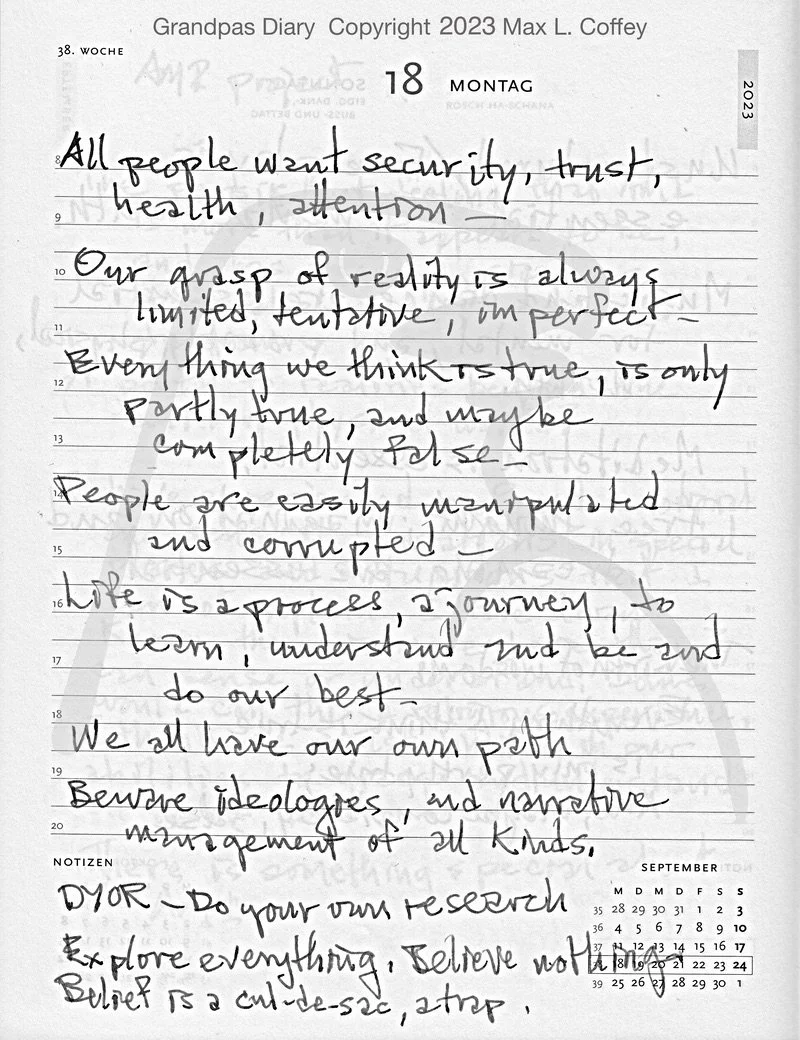 Grandpas Diary Copyright 2023 Max L. Coffey
38. WOCHE
18 MONTAG
2023
All people want security, trust,
health, attention —
Our grasp of reality is always
limited, tentative, imperfect –
Everything we think is true, is only
partly true, and maybe
completely false –
People are easily manipulated
and corrupted —
Life is a process, a journey, to
learn, understand and be and
do our best –
We all have our own path
Beware ideologies, and narrative
management of all kinds.
8
9
10
11
12
13
14
15
16
17
18
19
20
NOTIZEN
DYOR – Do your own research
Explore everything. Believe nothing –
Belief is a cul-de-sac, a trap.
SEPTEMBER
M D M D F S S
35 28 29 30 31 1 2 3
36 4 5 6 7 8 9 10
37 11 12 13 14 15 16 17
38 18 19 20 21 22 23 24
39 25 26 27 28 29 30 1